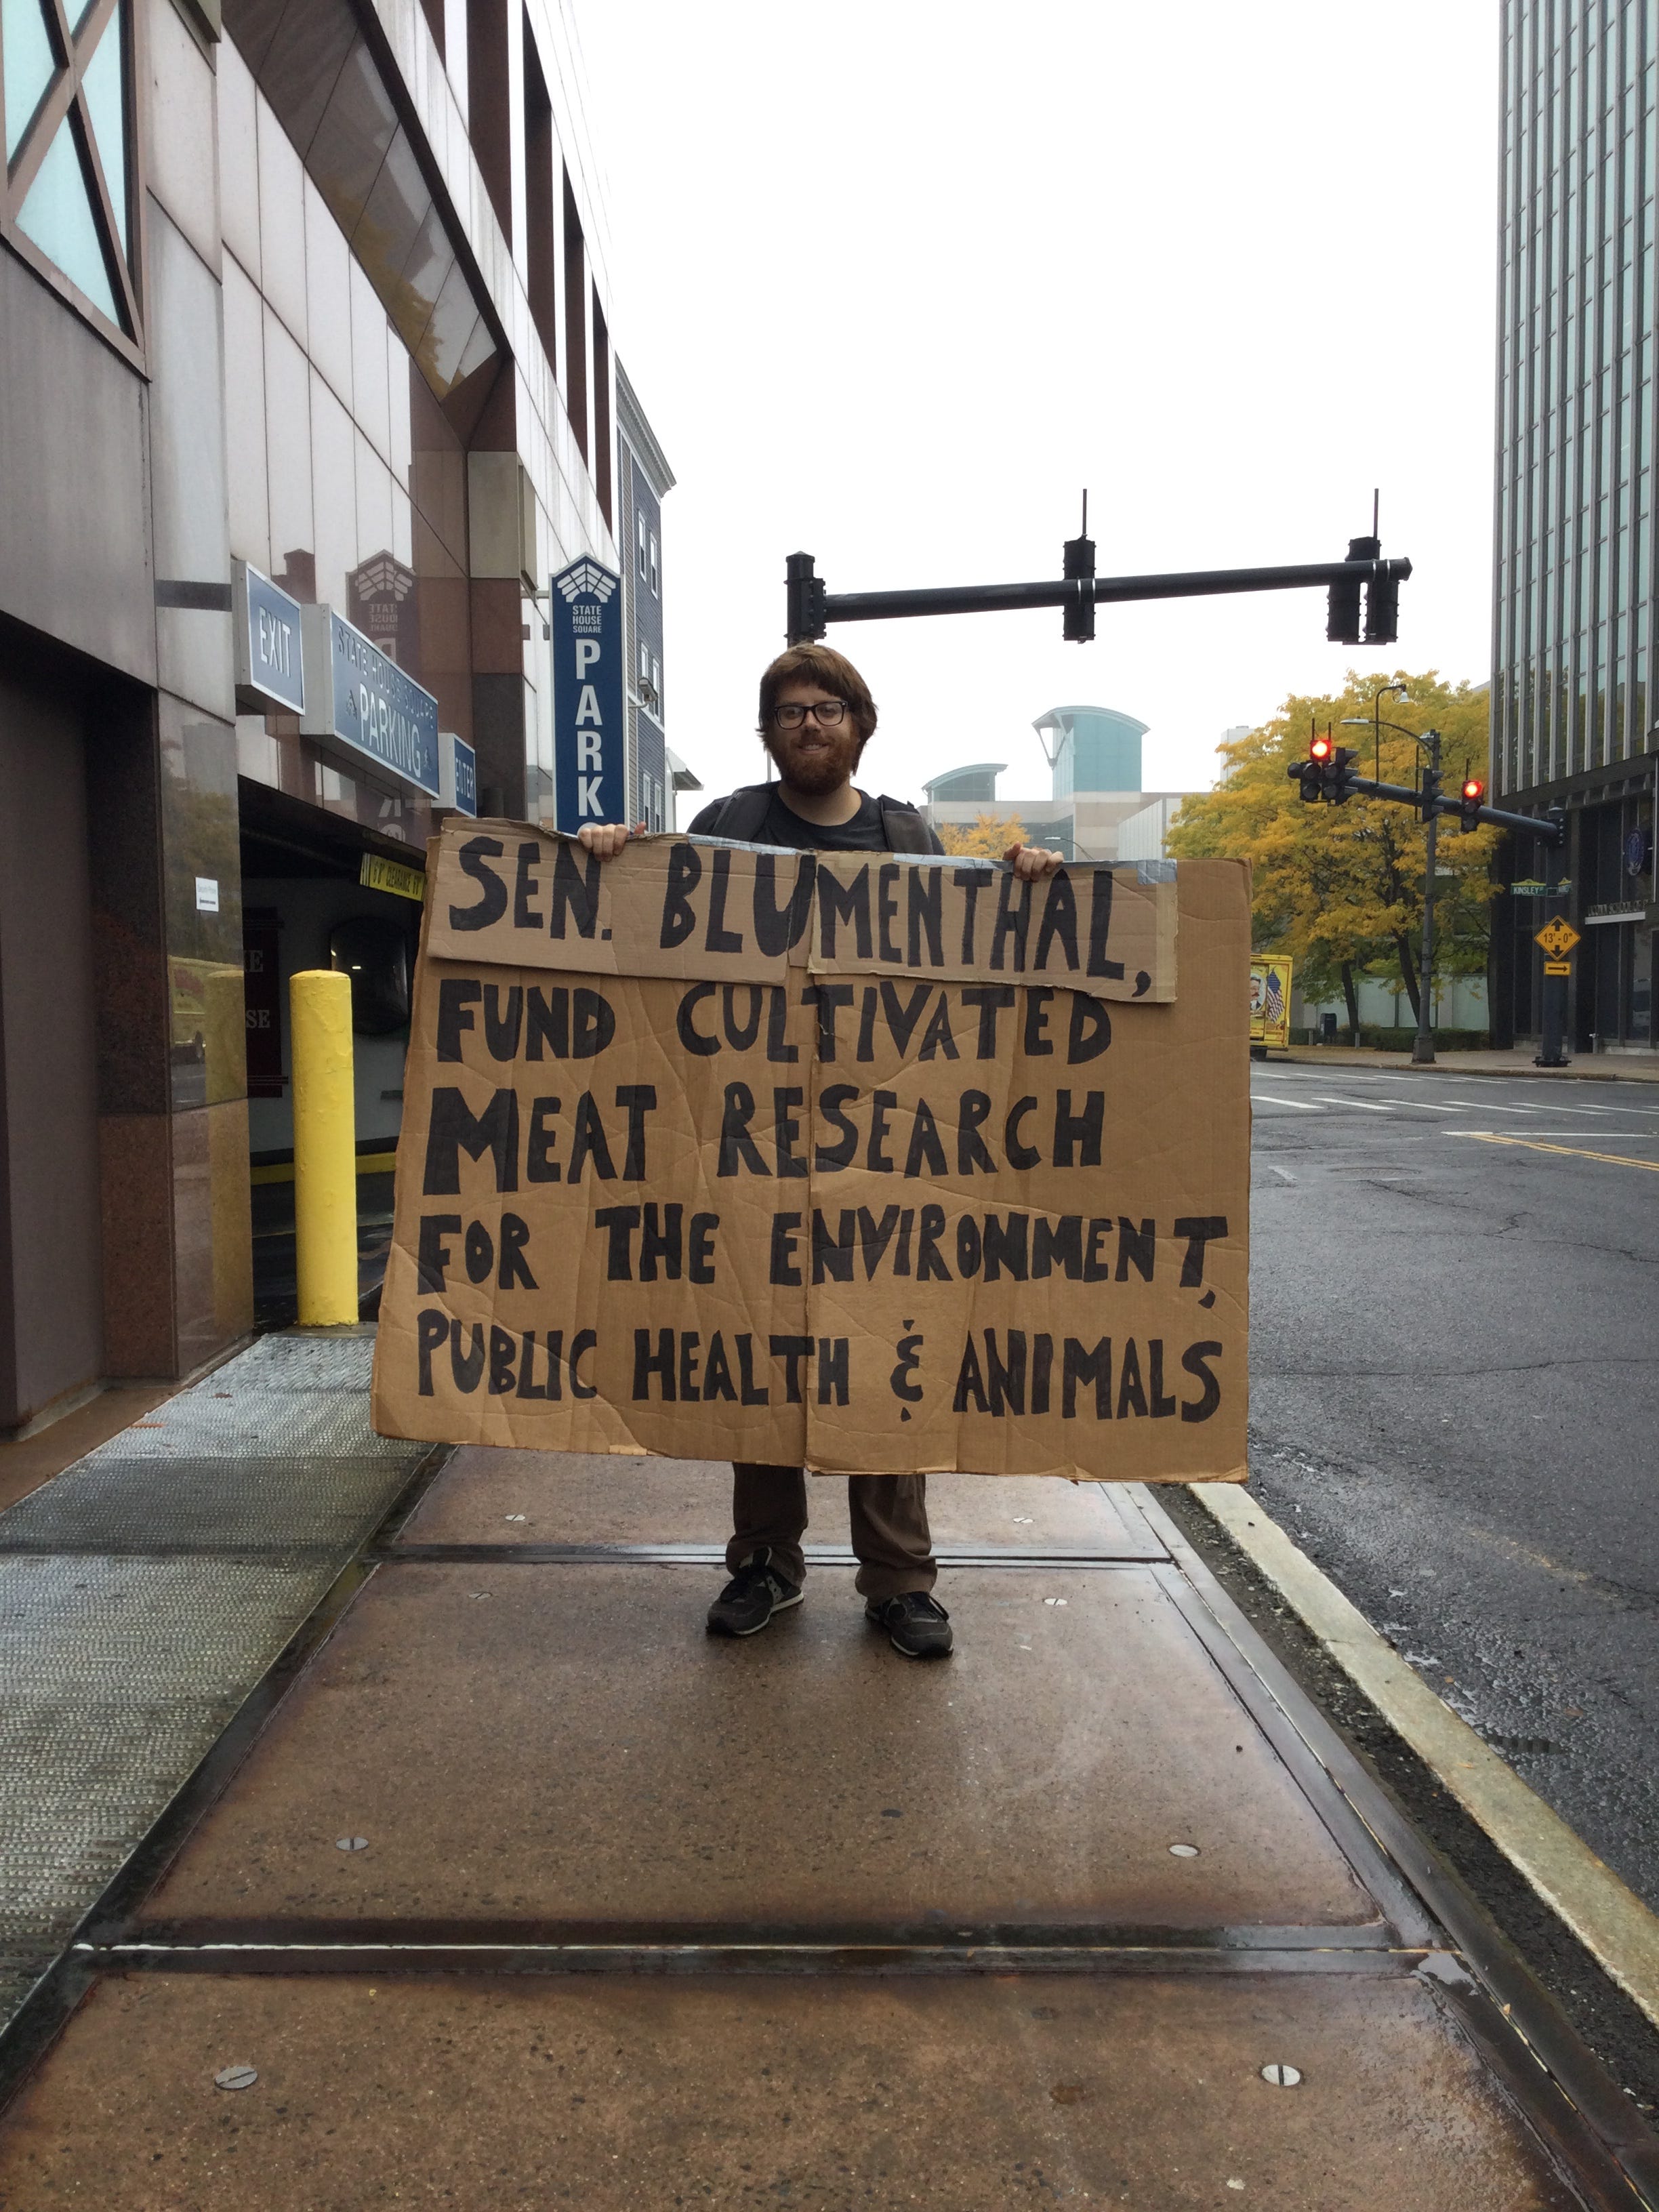 EXIT
STATE HOUSE SQUARE
PARKING
ENTER
STATE
HOUSE
SQUARE
PARK
CLEARANCE 6'8"
SEN. BLUMENTHAL,
FUND CULTIVATED
MEAT RESEARCH
FOR THE ENVIRONMENT,
PUBLIC HEALTH & ANIMALS
KINSLEY
13'-0"